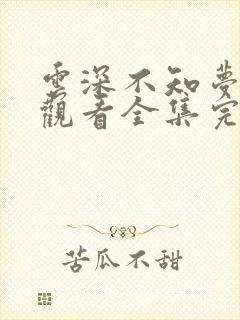 雲深不知夢
觀看全集完
苦瓜不甜